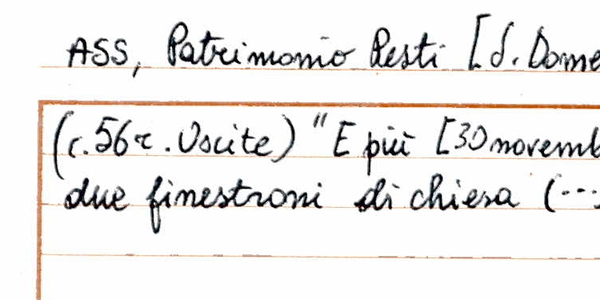 ASS, Patrimonio Resti [S. Dome
(c.56r. Uscite) "E più [30 novemb
due finestroni di chiesa (...